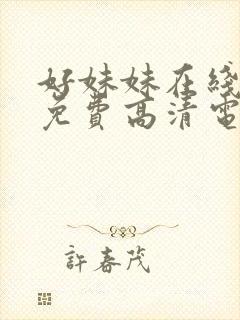 好妹妹在綫
免費高清電
許春茂